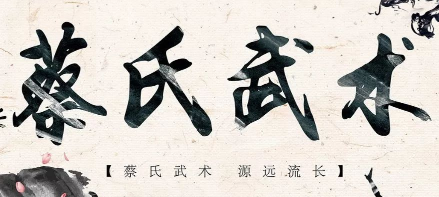 蔡氏武术
【蔡氏武术 源远流长】